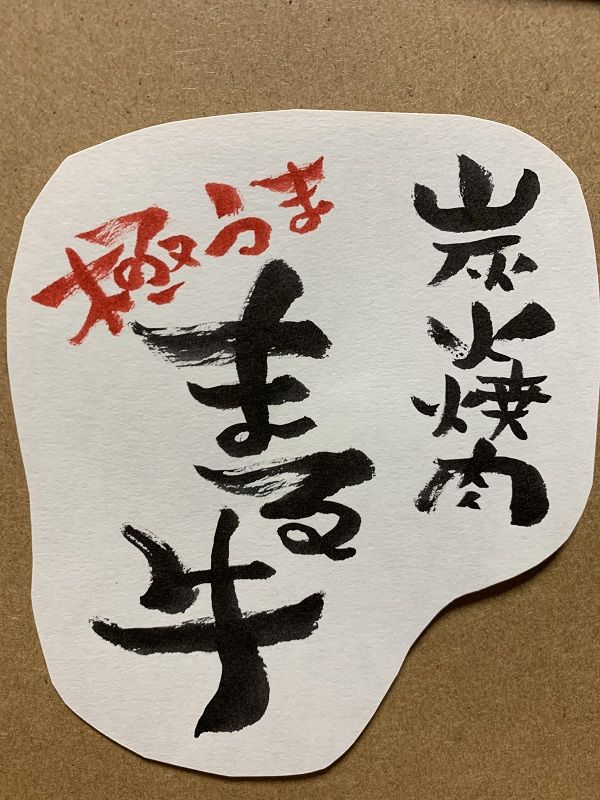 炭火焼肉
極うま
まる牛